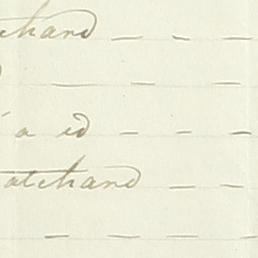 chand - - -
- - -
a id - - -
atchand - -
- - - - -